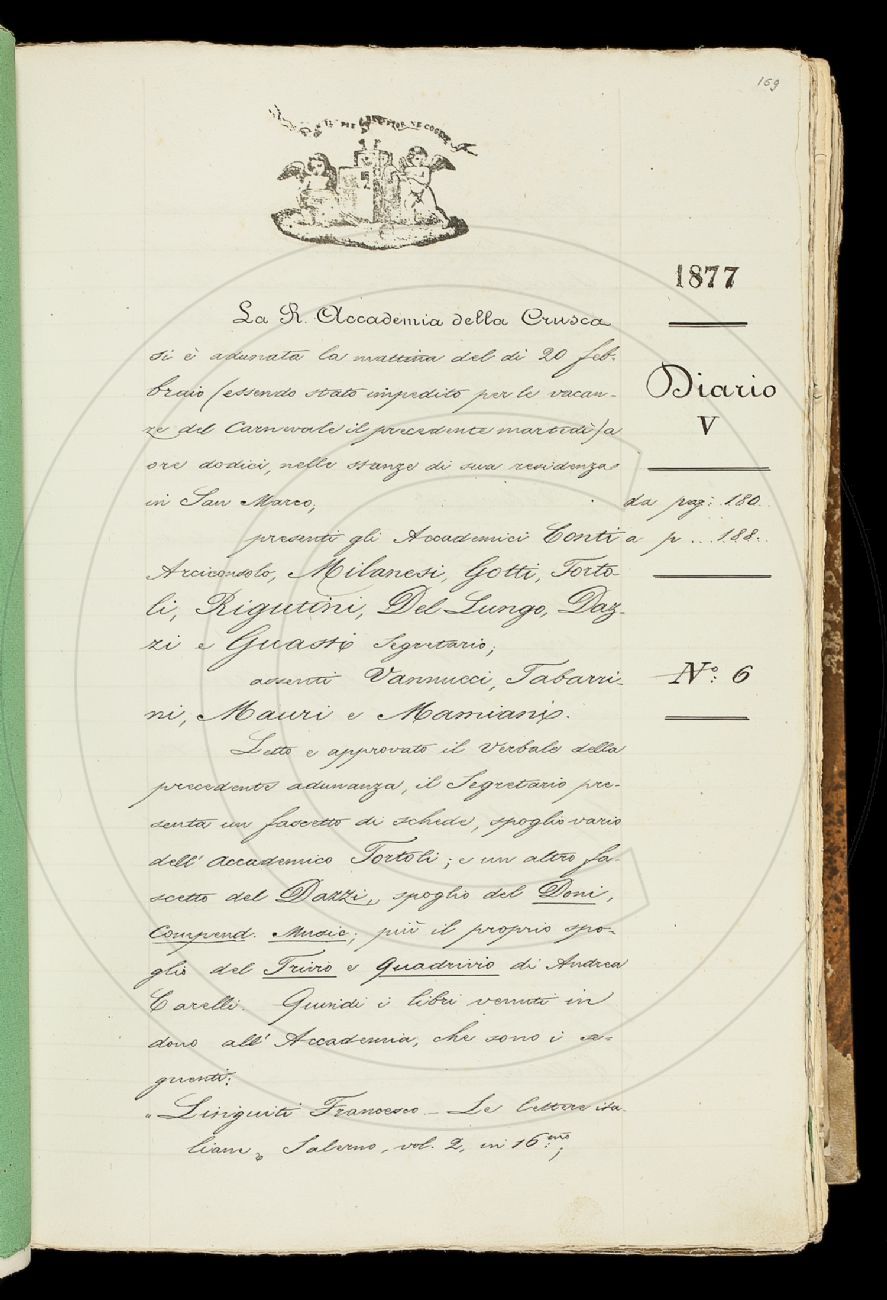 169
1877
La R. Accademia della Crusca
si è adunata la mattina del dì 20 feb-
braio (essendo stato impedito per le vacan-
ze del Carnevale il precedente martedì) a
ore dodici, nelle stanze di sua residenza
in San Marco;
presenti gli Accademici Conti
Arciconsolo, Milanesi, Gotti, Torto-
li, Rigutini, Del Lungo, Daz-
zi e Guasti Segretario;
assenti Vannucci, Tabarri-
ni, Mauri e Mamiani.
Letto e approvato il Verbale della
precedente adunanza, il Segretario pre-
senta un fascetto di schede, spoglio vario
dell' Accademico Tortoli; e un altro fa-
scetto del Dazzi, spoglio del Doni,
Compend. Music.; più il proprio spo-
glio del Trivio e Quadrivio di Andrea
Carelli. Quindi i libri venuti in
dono all' Accademia, che sono i se-
guenti:
" Linguiti Francesco - Le lettere ita-
liane " Salerno, vol. 2, in 16.mo;
Diario
V
da pag: 180.
a p... 188..
No: 6